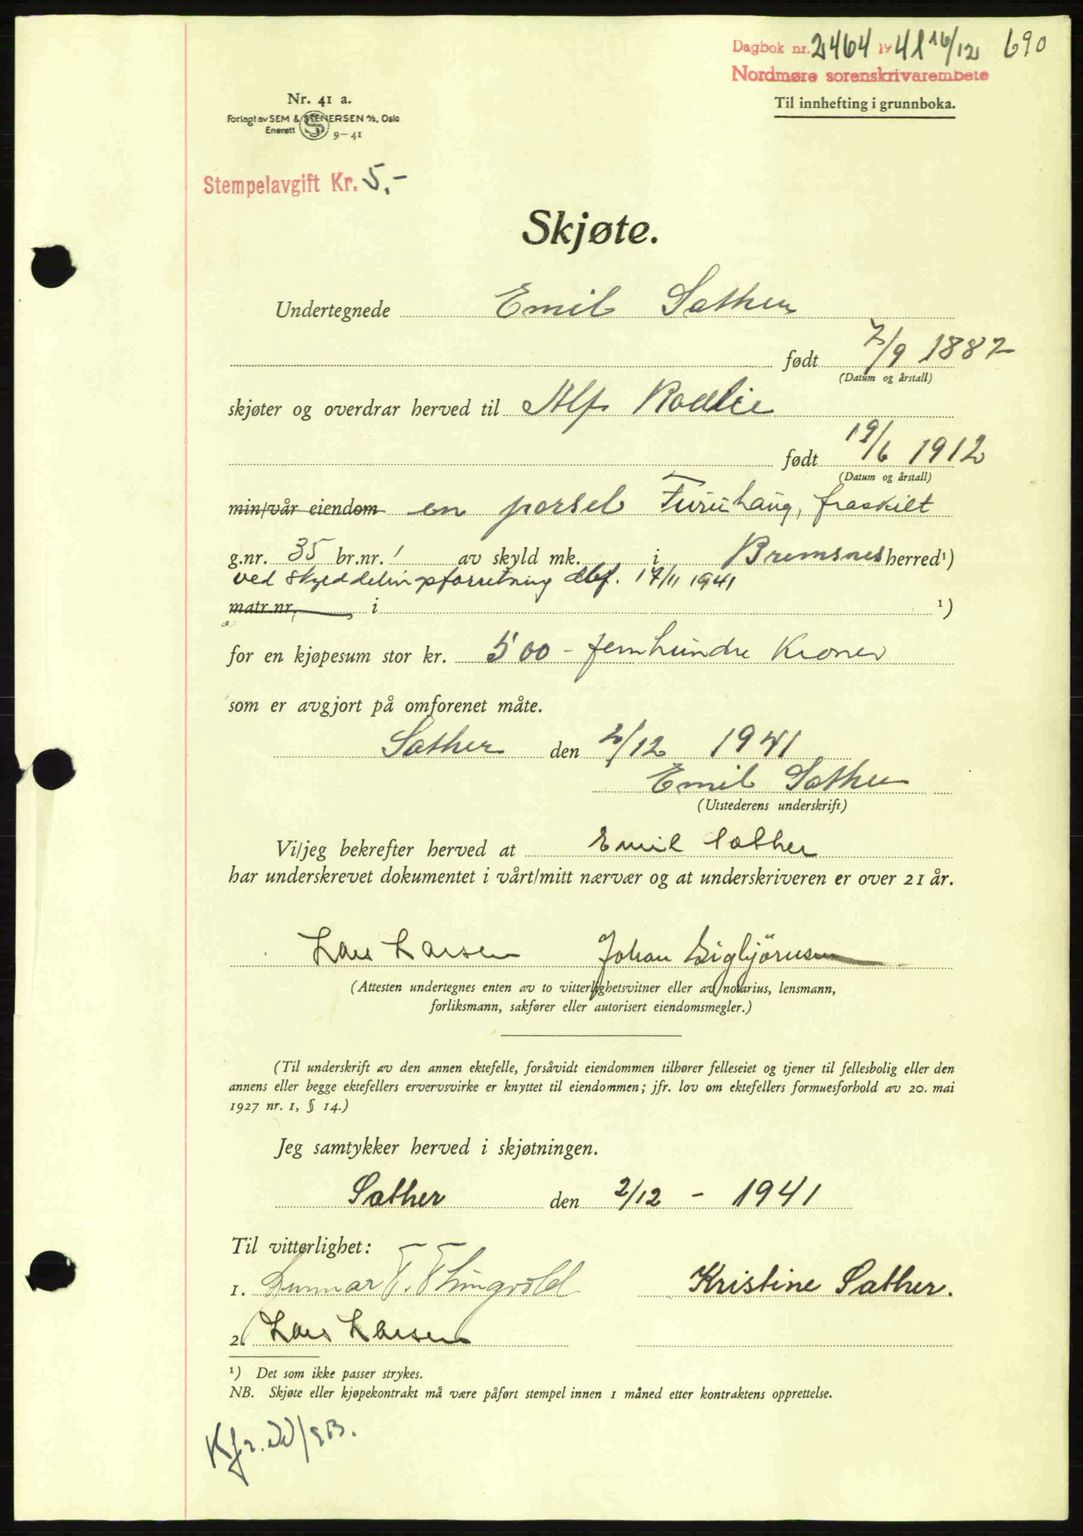 Dagbok nr. 2464 1941 16/12 690
Nordmøre sorenskrivarembete
Til innhefting i grunnboka.
Nr. 41 a.
Forlagt av SEM & STENERSEN A/S, Oslo
Enerett 9-41
Stempelavgift Kr. 5,-
Skjøte.
Undertegnede Emil Sather
født 7/9 1887
(Datum og årstall)
skjøter og overdrar herved til Alf Rodlie
født 19/6 1912
(Datum og årstall)
min/vår eiendom en parsel Furuhaug, fraskilt
g.nr. 35 br.nr. 1 av skyld mk. i Bremsnes herred¹)
ved skylddelingsforretning dbf. 17/11 1941
matr.nr. , i ¹)
for en kjøpesum stor kr. 500 - femhundre Kroner
som er avgjort på omforenet måte.
Sather den 2/12 1941
Emil Sather
(Utstederens underskrift)
Vi/jeg bekrefter herved at Emil Sather
har underskrevet dokumentet i vårt/mitt nærvær og at underskriveren er over 21 år.
Lars Larsen Johan Sigbjørnsen
(Attesten undertegnes enten av to vitterlighetsvitner eller av notarius, lensmann,
forliksmann, sakfører eller autorisert eiendomsmegler.)
(Til underskrift av den annen ektefelle, forsåvidt eiendommen tilhører felleseiet og tjener til fellesbolig eller den
annens eller begge ektefellers ervervsvirke er knyttet til eiendommen; jfr. lov om ektefellers formuesforhold av 20. mai
1927 nr. 1, § 14.)
Jeg samtykker herved i skjøtningen.
Sather den 2/12 - 1941
Til vitterlighet:
1. Gunnar T. Thingvold Kristine Sather.
2. Lars Larsen
¹) Det som ikke passer strykes.
NB. Skjøte eller kjøpekontrakt må være påført stempel innen 1 måned etter kontraktens opprettelse.